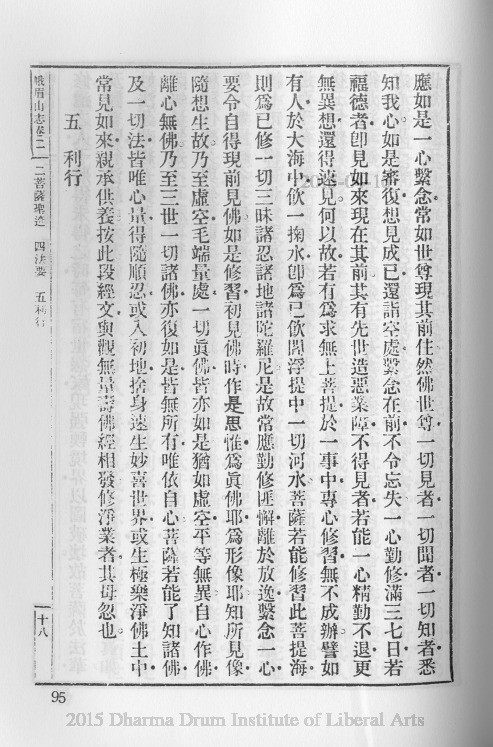 應如是一心繫念。常如世尊現其前住。然佛世尊。一切見者。一切聞者。一切知者。悉
知我心。如是審復。想見成已。還詣空處。繫念在前。不令忘失。一心勤修。滿三七日。若
福德者。卽見如來現在其前。其有先世造惡業障。不得見者。若能一心精勤不退。更
無異想。還得速見。何以故。若有爲求無上菩提。於一事中專心修習。無不成辦。譬如
有人。於大海中。飲一掬水。卽爲已飲閻浮提中一切河水。菩薩若能修習此菩提海。
則爲已修一切三昧。諸忍。諸地。諸陀羅尼。是故常應勤修匪懈。離於放逸。繫念一心。
要令自得現前見佛。如是修習。初見佛時。作是思惟。爲眞佛耶。爲形像耶。知所見像
隨想生故。乃至虛空毛端量處。一切眞佛。皆亦如是。猶如虛空平等無異。自心作佛。
離心無佛。乃至三世一切諸佛。亦復如是。皆無所有。唯依自心。菩薩若能了知諸佛
及一切法。皆唯心量。得隨順忍。或入初地。捨身速生妙喜世界。或生極樂淨佛土中。
常見如來。親承供養。按此段經文。與觀無量壽佛經相發。修淨業者。其毋忽也。
五　利行
峨眉山志卷二　二菩薩聖迹　四法要　五利行
十八
95
2015 Dharma Drum Institute of Liberal Arts